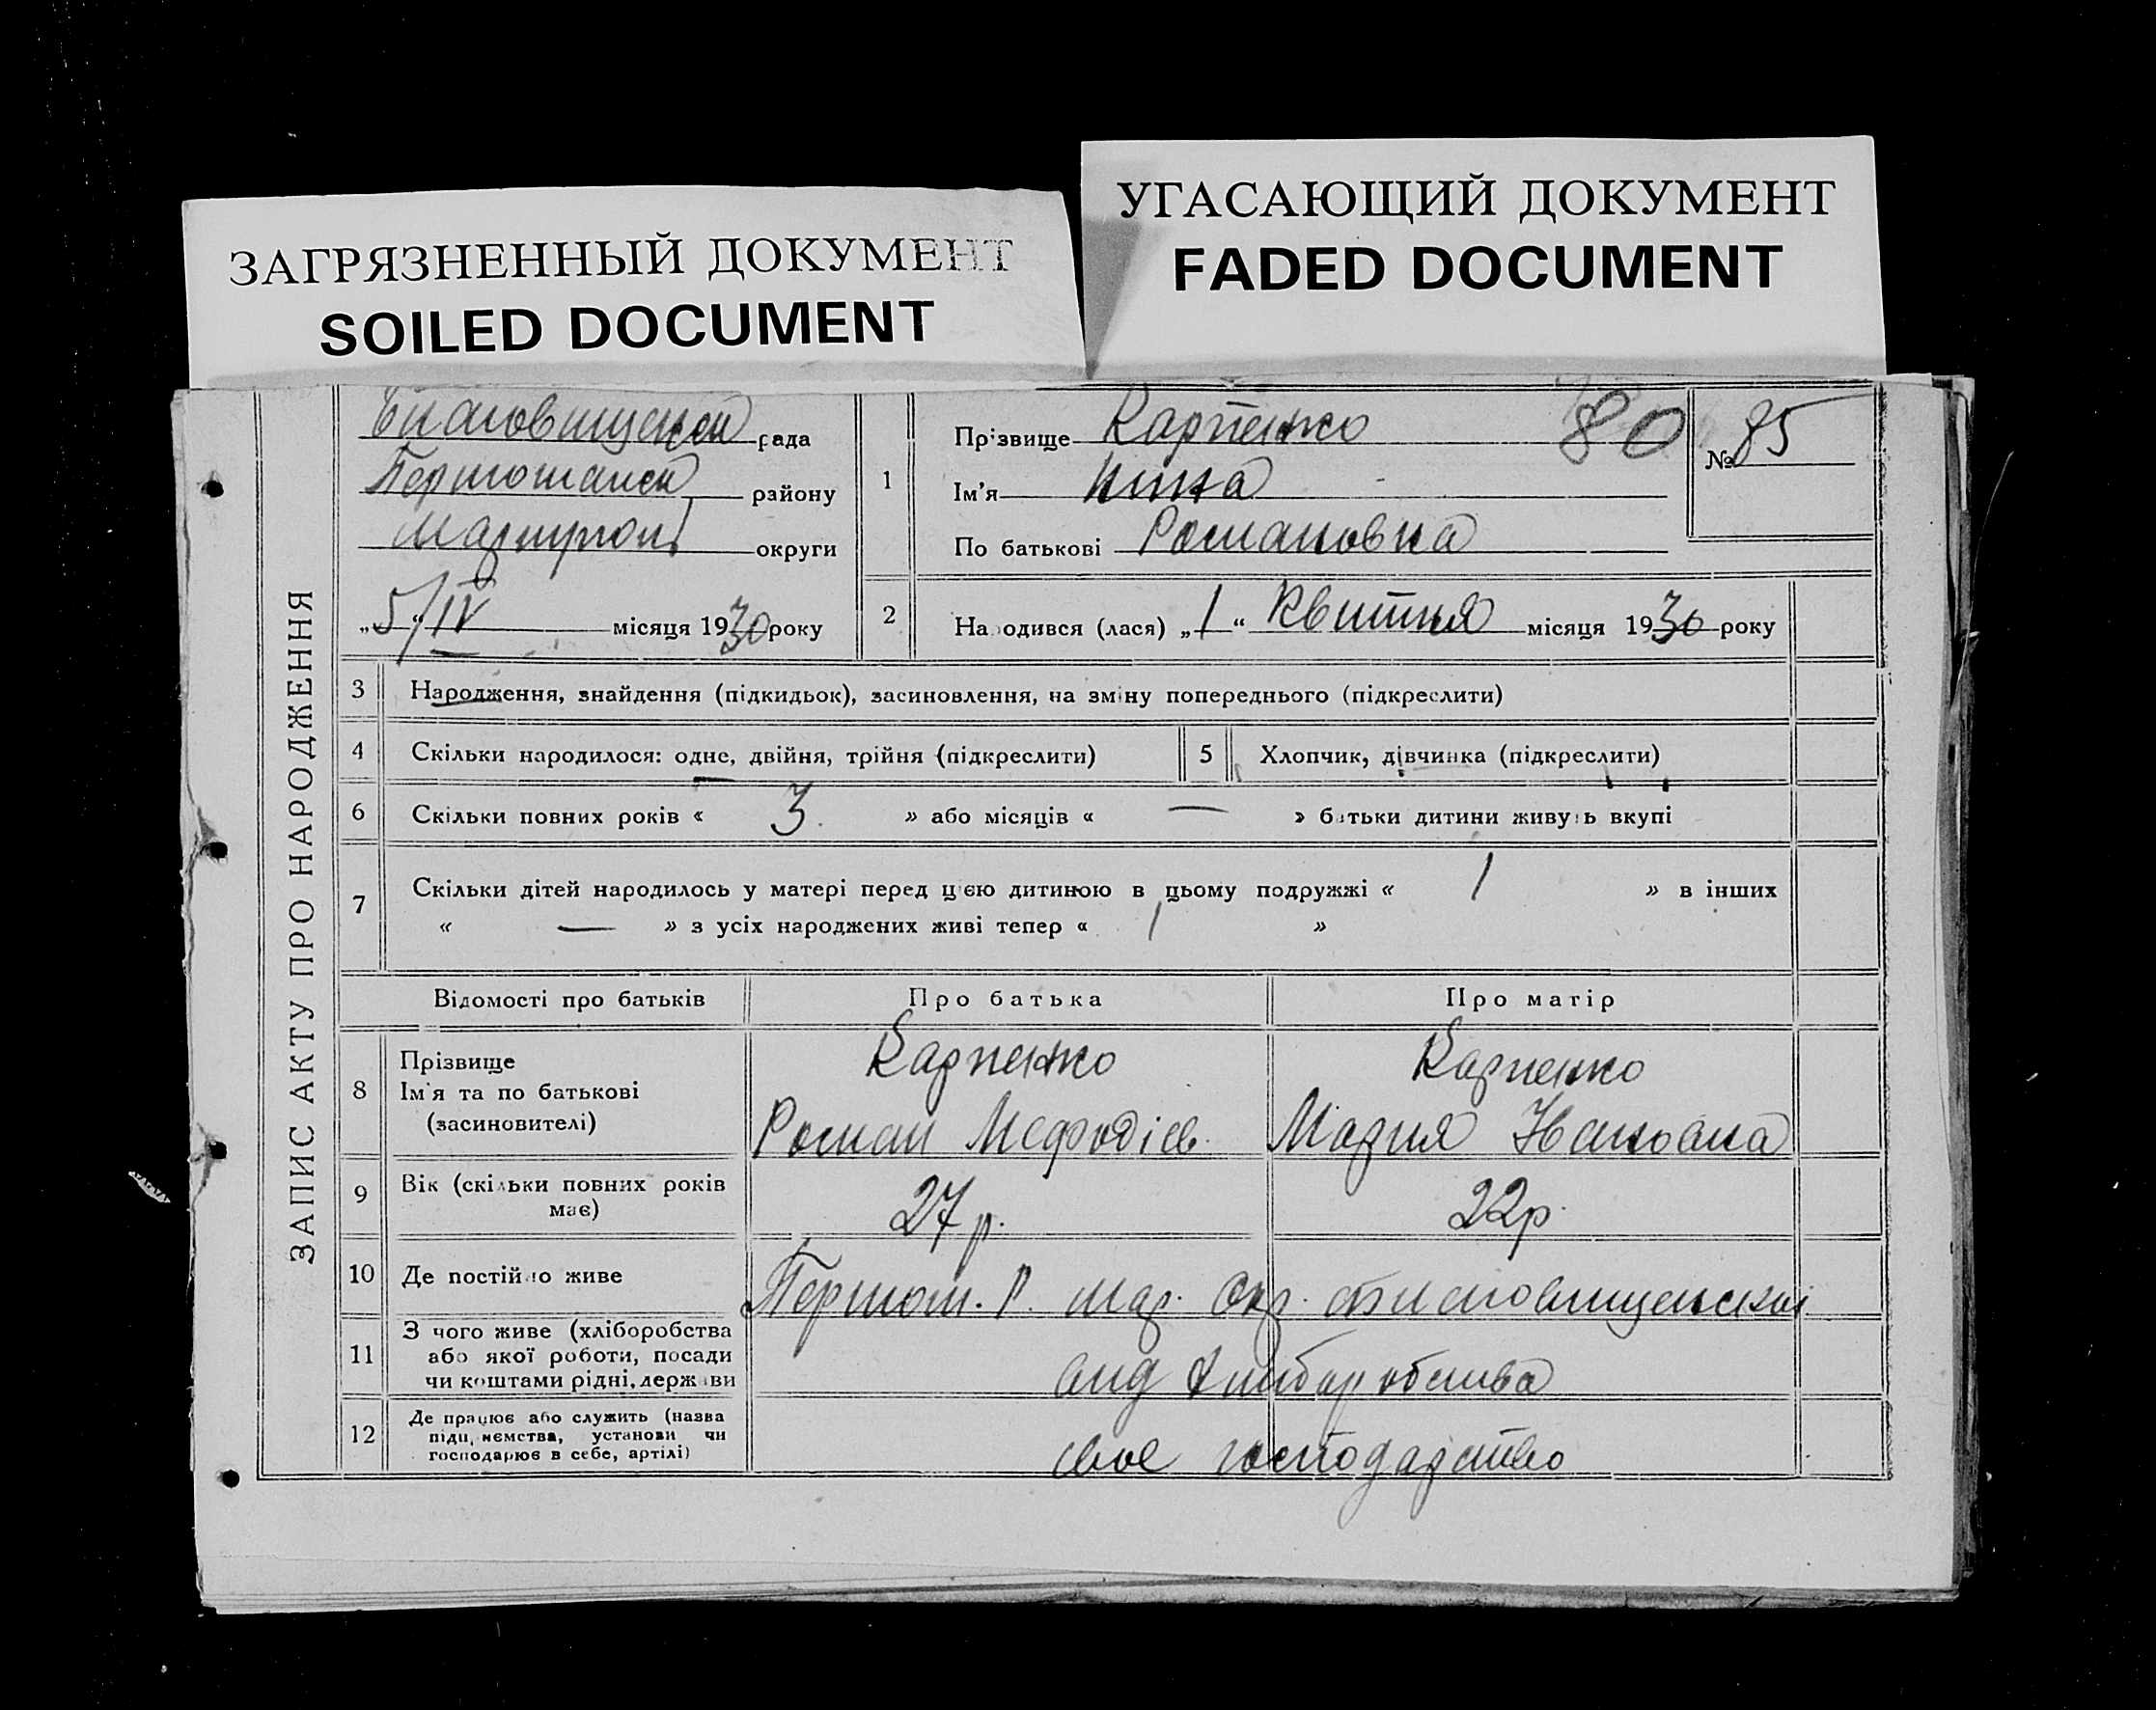 ЗАГРЯЗНЕННЫЙ ДОКУМЕНТ
SOILED DOCUMENT
УГАСАЮЩИЙ ДОКУМЕНТ
FADED DOCUMENT
ЗАПИС АКТУ ПРО НАРОДЖЕННЯ
рада
району
Маріупол округи
„5“/IV місяця 1930 року
1
Прізвище Карпенко 80
№ 85
Ім'я Нина
По батькові Романовна
2 Народився (лася) „1“ Квитня місяця 1930 року
3 Народження, знайдення (підкидьок), засиновлення, на зміну попереднього (підкреслити)
4 Скільки народилося: одне, двійня, трійня (підкреслити) 5 Хлопчик, дівчинка (підкреслити)
6 Скільки повних років « 3 » або місяців « — » батьки дитини живуть вкупі
7 Скільки дітей народилось у матері перед цією дитиною в цьому подружжі « 1 » в інших
« — » з усіх народжених живі тепер « 1 »
Відомості про батьків Про батька Про матір
8 Прізвище Карпенко Карпенко
Ім'я та по батькові Роман Мефодіев. Мария
(засиновителі)
9 Вік (скільки повних років має) 27 р. 22 р.
10 Де постійно живе Першом. Р. Мар. Окр.
11 З чого живе (хліборобства
або якої роботи, посади
чи коштами рідні, держави
12 Де працює або служить (назва
підприємства, установи чи
господарює в себе, артілі) свое господарство